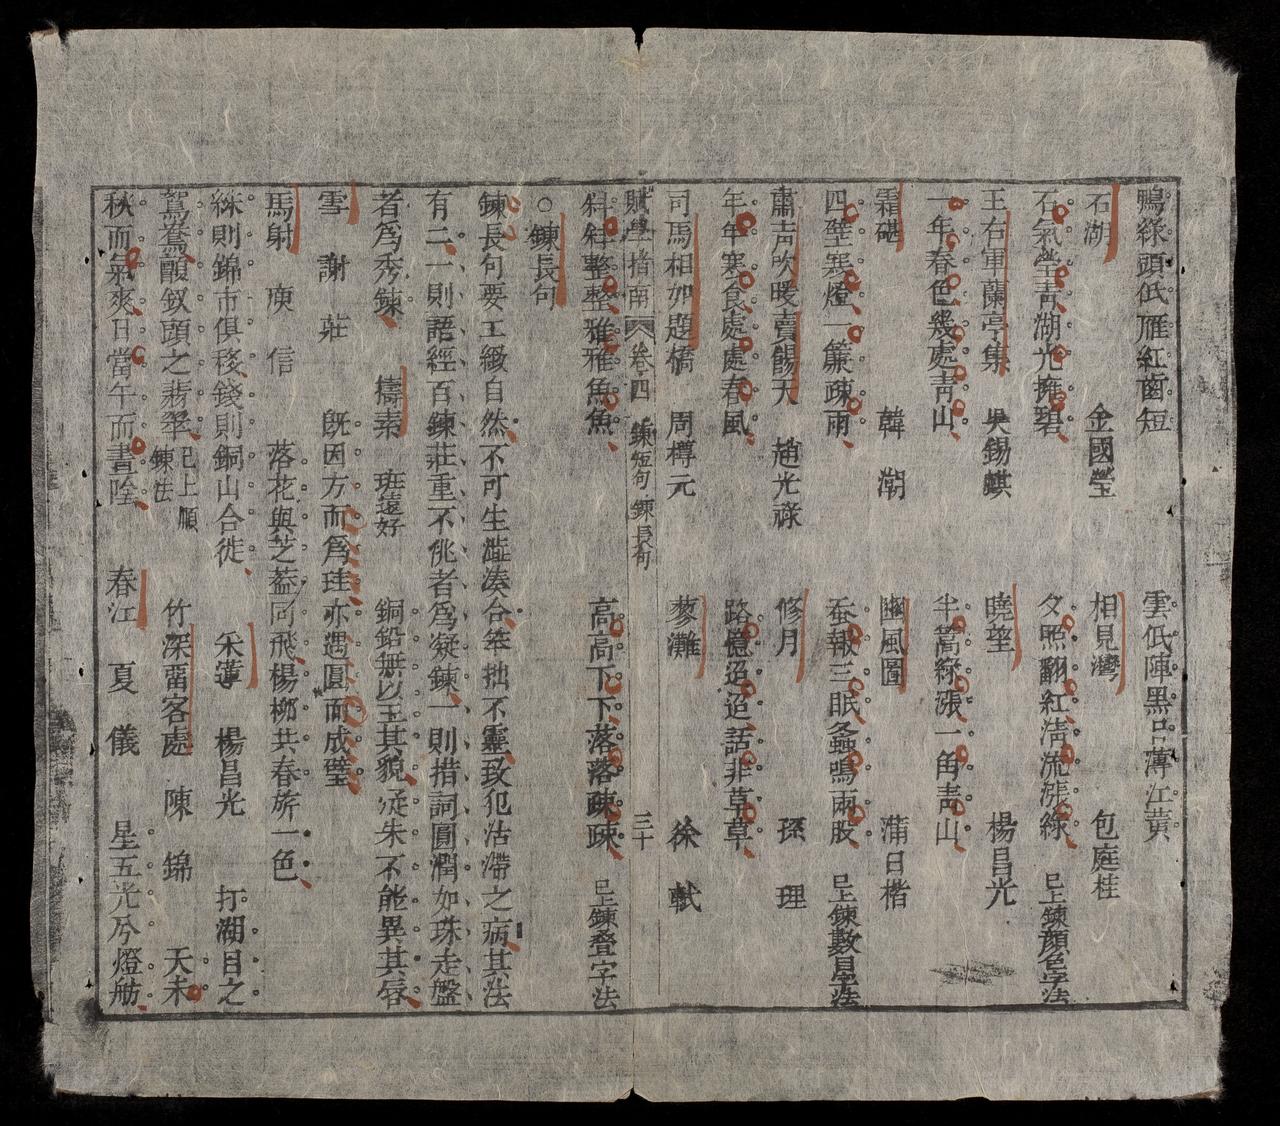 鴨綠頭低雁紅齒短 雲低陣黑呂薄江黃
石湖 金國瑩 相見灣 包庭桂
石氣瑩靑湖光擁碧 夕照翻紅淸流漲綠 已上鍊顏色字法
王右軍蘭亭集 吳錫麒 曉望 楊昌光
一年春色幾處靑山 半篙綠漲一角靑山
霜碪 韓潮 豳風圖 蒲日楷
四壁寒燈一簾疎雨 蚕報三眠 鳴兩股 已上鍊數目字法
肅靑吹暖賣餳天 趙光祿 修月 孫理
年年寒食處處春風 路憶迢迢話非草草
司馬相如題橋 周樽元 蓼灘 徐軾
斜斜整整雅雅魚魚 高高下下落落疎疎 已上鍊叠字法
賦學指南 卷四 鍊短句 鍊長句 三十
○鍊長句
鍊長句要工緻自然不可生澁湊合笨拙不靈致犯沾滯之病其法
有二一則語經百鍊莊重不佻者爲凝鍊一則措詞圓潤如珠走盤
者爲秀鍊 擣素 班㨗好 銅鉛無以玉其貌凝朱不能異其唇
雪 謝莊 旣因方而爲珪亦遇圓而成璧
馬射 庾信 落花與芝葢同飛楊柳共春旂一色
綵則錦市俱移錢則銅山合徙 采蓮 楊昌光 打湖目之
鴛鴦顫釵頭之翡翠 已上順鍊法 竹深畱客處 陳錦 天禾
秋而氣爽日當午而晝陰 春江 夏儀 星五光兮燈舫